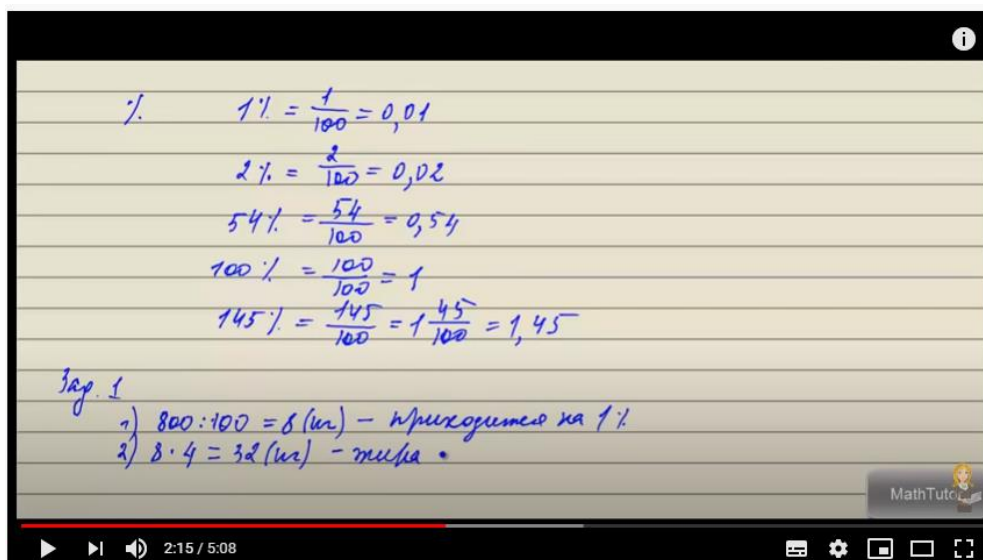 % 1% = 1/100 = 0,01
2% = 2/100 = 0,02
54% = 54/100 = 0,54
100% = 100/100 = 1
145% = 145/100 = 1 45/100 = 1,45
Зад. 1
1) 800:100 = 8 (кг) – приходится на 1%
2) 8 · 4 = 32 (кг) – жира
MathTutor
2:15 / 5:08